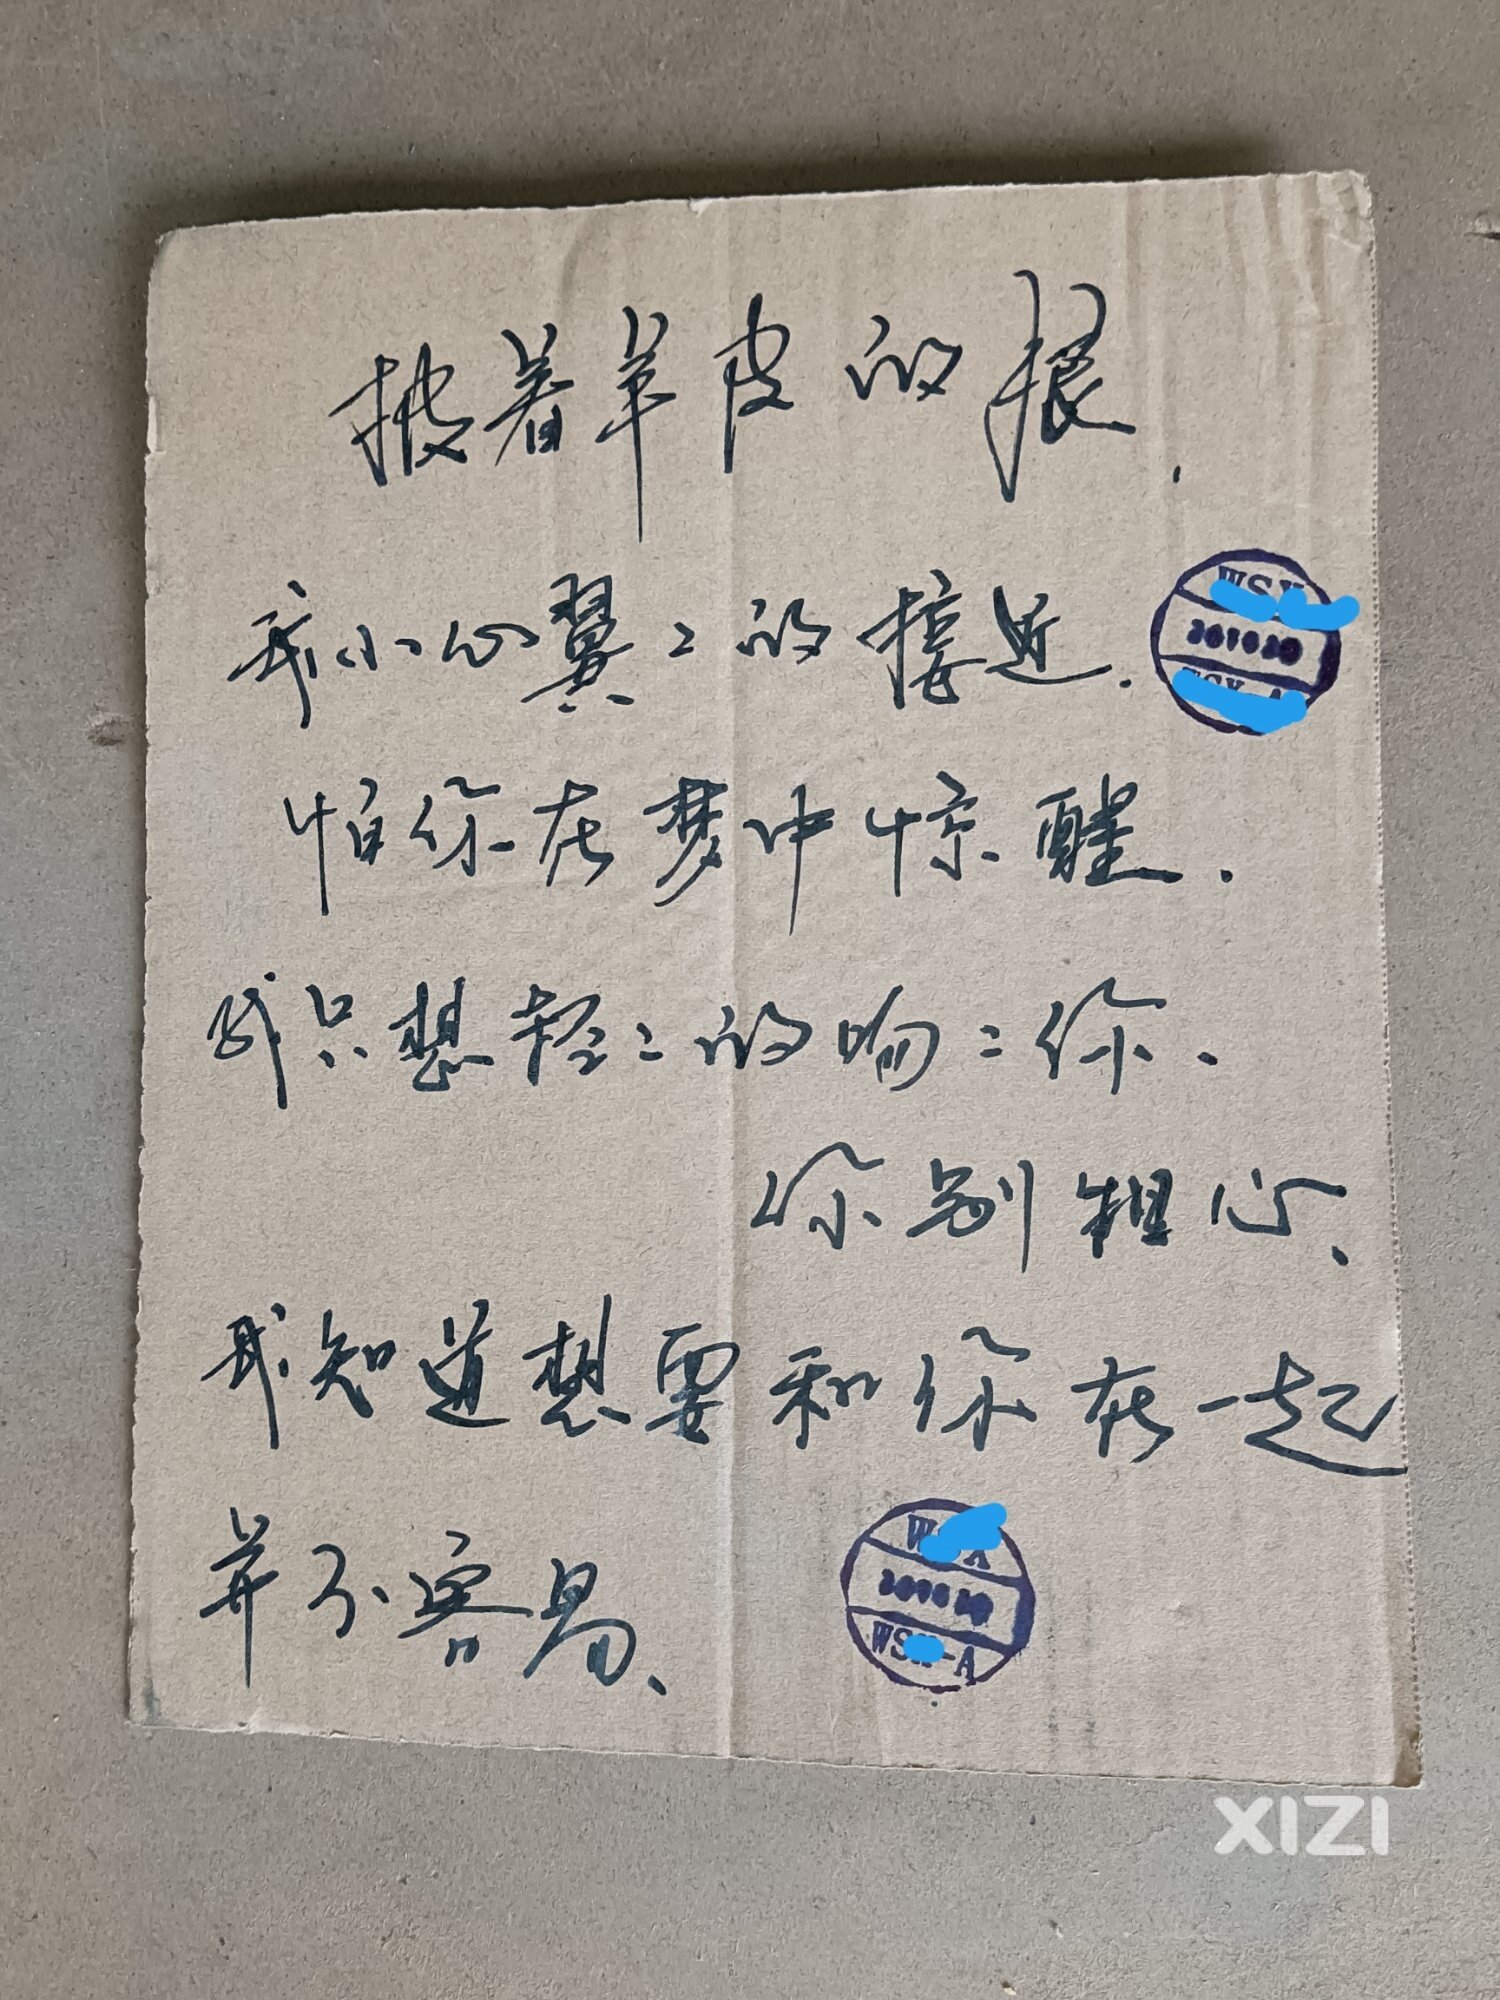 披着羊皮的狼.
我小心翼々的接近.
怕你在梦中惊醒.
我只想轻々的吻々你、
你别担心、
我知道想要和你在一起
并不容易、
XIZI